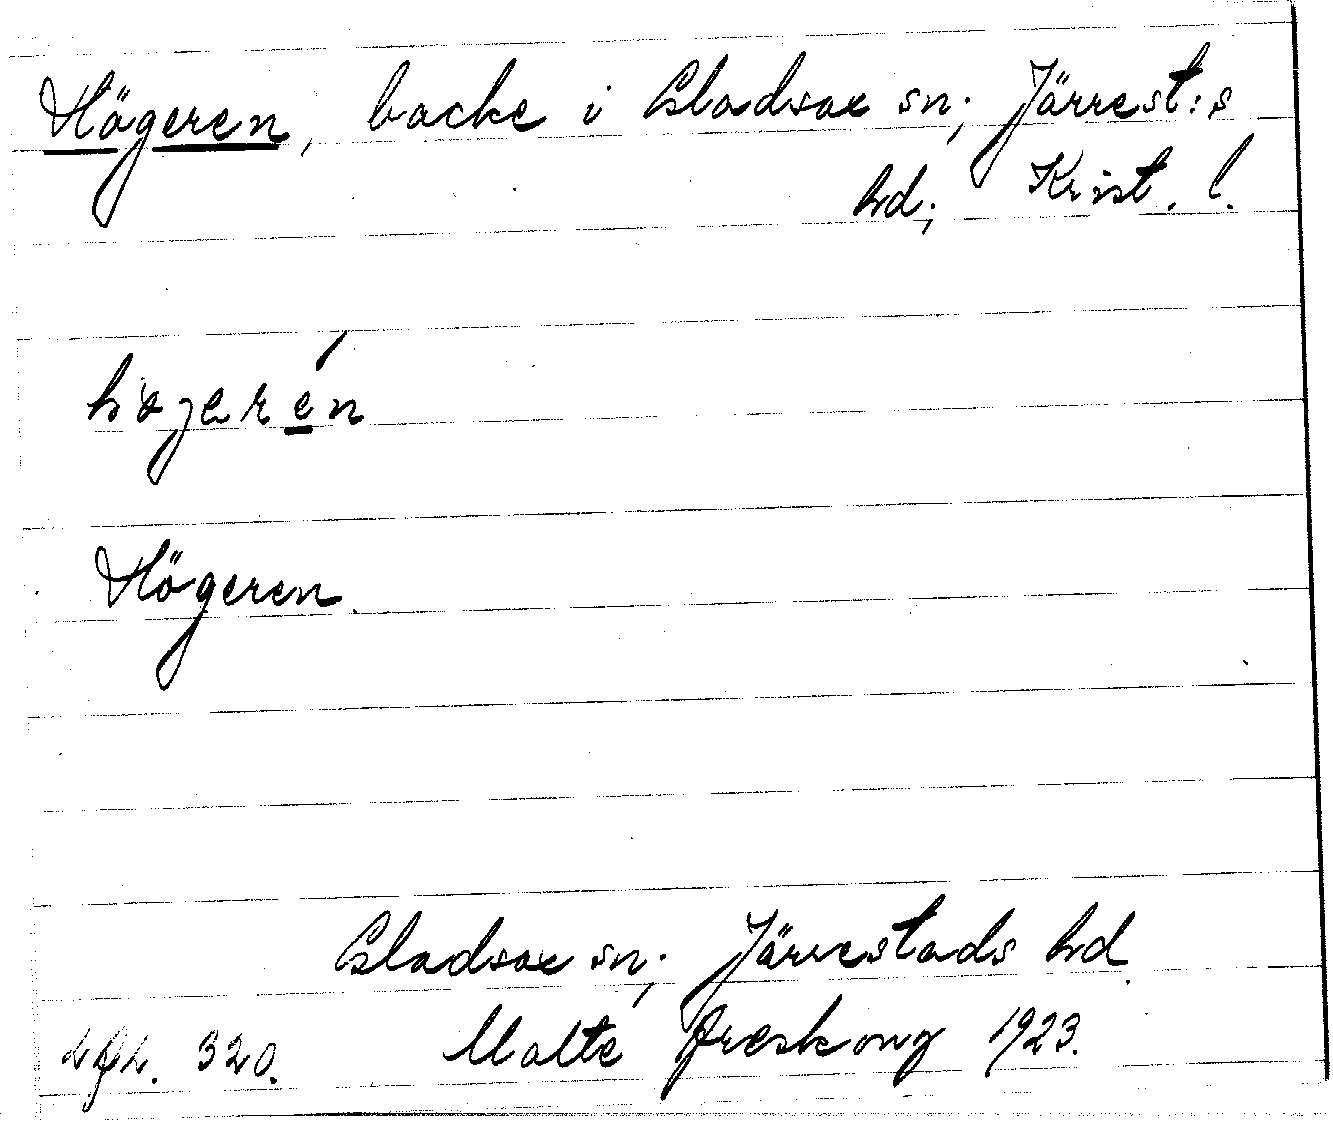 Högeren, backe i Gladsax sn; Järrest:s
hd; Krist. l.
højerén
Högeren.
Gladsax sn; Järrestads hd.
320. Malte Areskoug 1923.